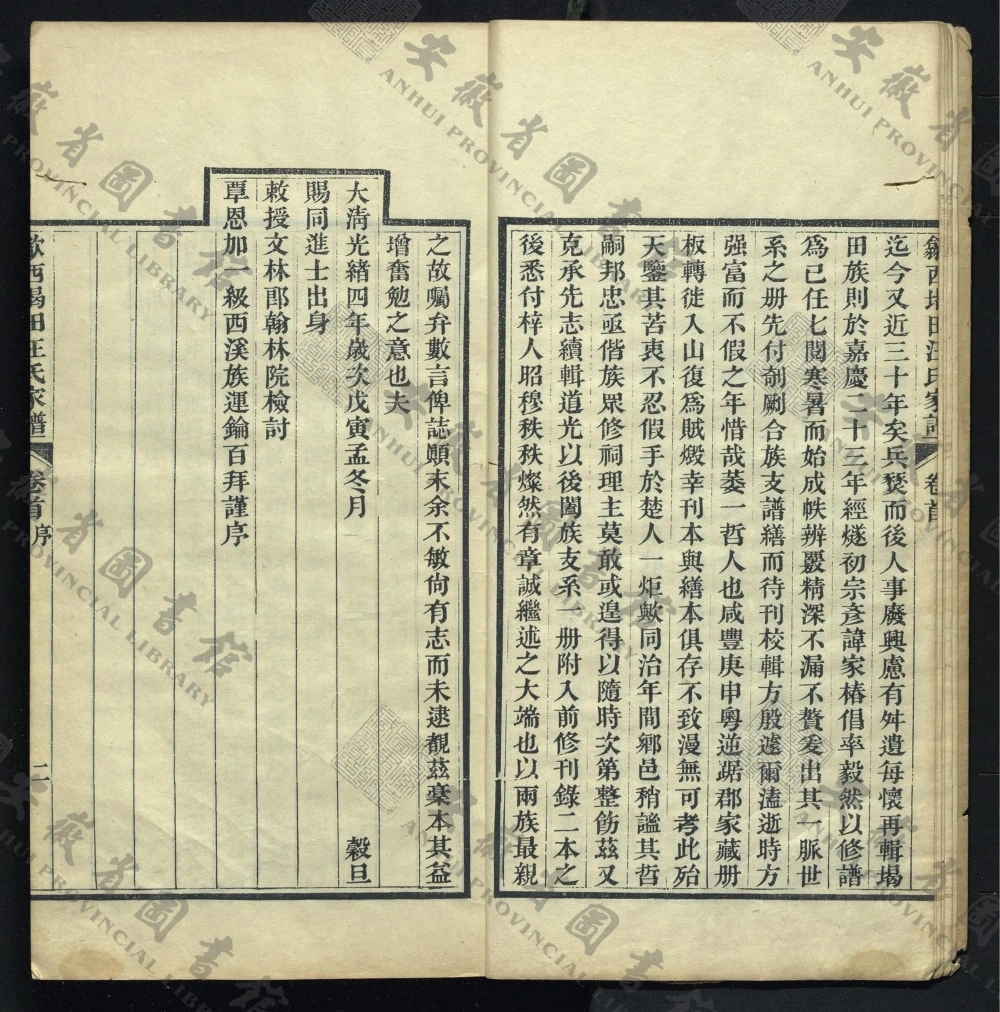 歙西堨田汪氏家譜 卷首
迄今又近三十年矣兵燹而後人事廢興慮有舛遺每懷再輯堨
田族則於嘉慶二十三年經燧初宗彥諱家椿倡率毅然以修譜
為已任七閱寒暑而始成帙辨覈精深不漏不贅爰出其一脈世
系之册先付剞劂合族支譜繕而待刊校輯方殷遽爾溘逝時方
强富而不假之年惜哉萎一哲人也咸豐庚申粵逆踞郡家藏册
板轉徙入山復為賊燬幸刊本與繕本俱存不致漫無可考此殆
天鑒其苦衷不忍假手於楚人一炬歟同治年間鄉邑稍謐其哲
嗣邦忠亟偕族眾修祠理主莫敢或遑得以隨時次第整飭茲又
克承先志續輯道光以後闔族支系一册附入前修刊錄二本之
後悉付梓人昭穆秩秩燦然有章誠繼述之大端也以兩族最親
之故囑弁數言俾誌顛末余不敏尙有志而未逮覩茲稾本其益
增奮勉之意也夫
大淸光緒四年歲次戊寅孟冬月 穀旦
賜同進士出身
敕授文林郎翰林院檢討
覃恩加一級西溪族運鑰百拜謹序
歙西堨田汪氏家譜 卷首 序 二
安徽省圖書館
ANHUI PROVINCIAL LIBRARY